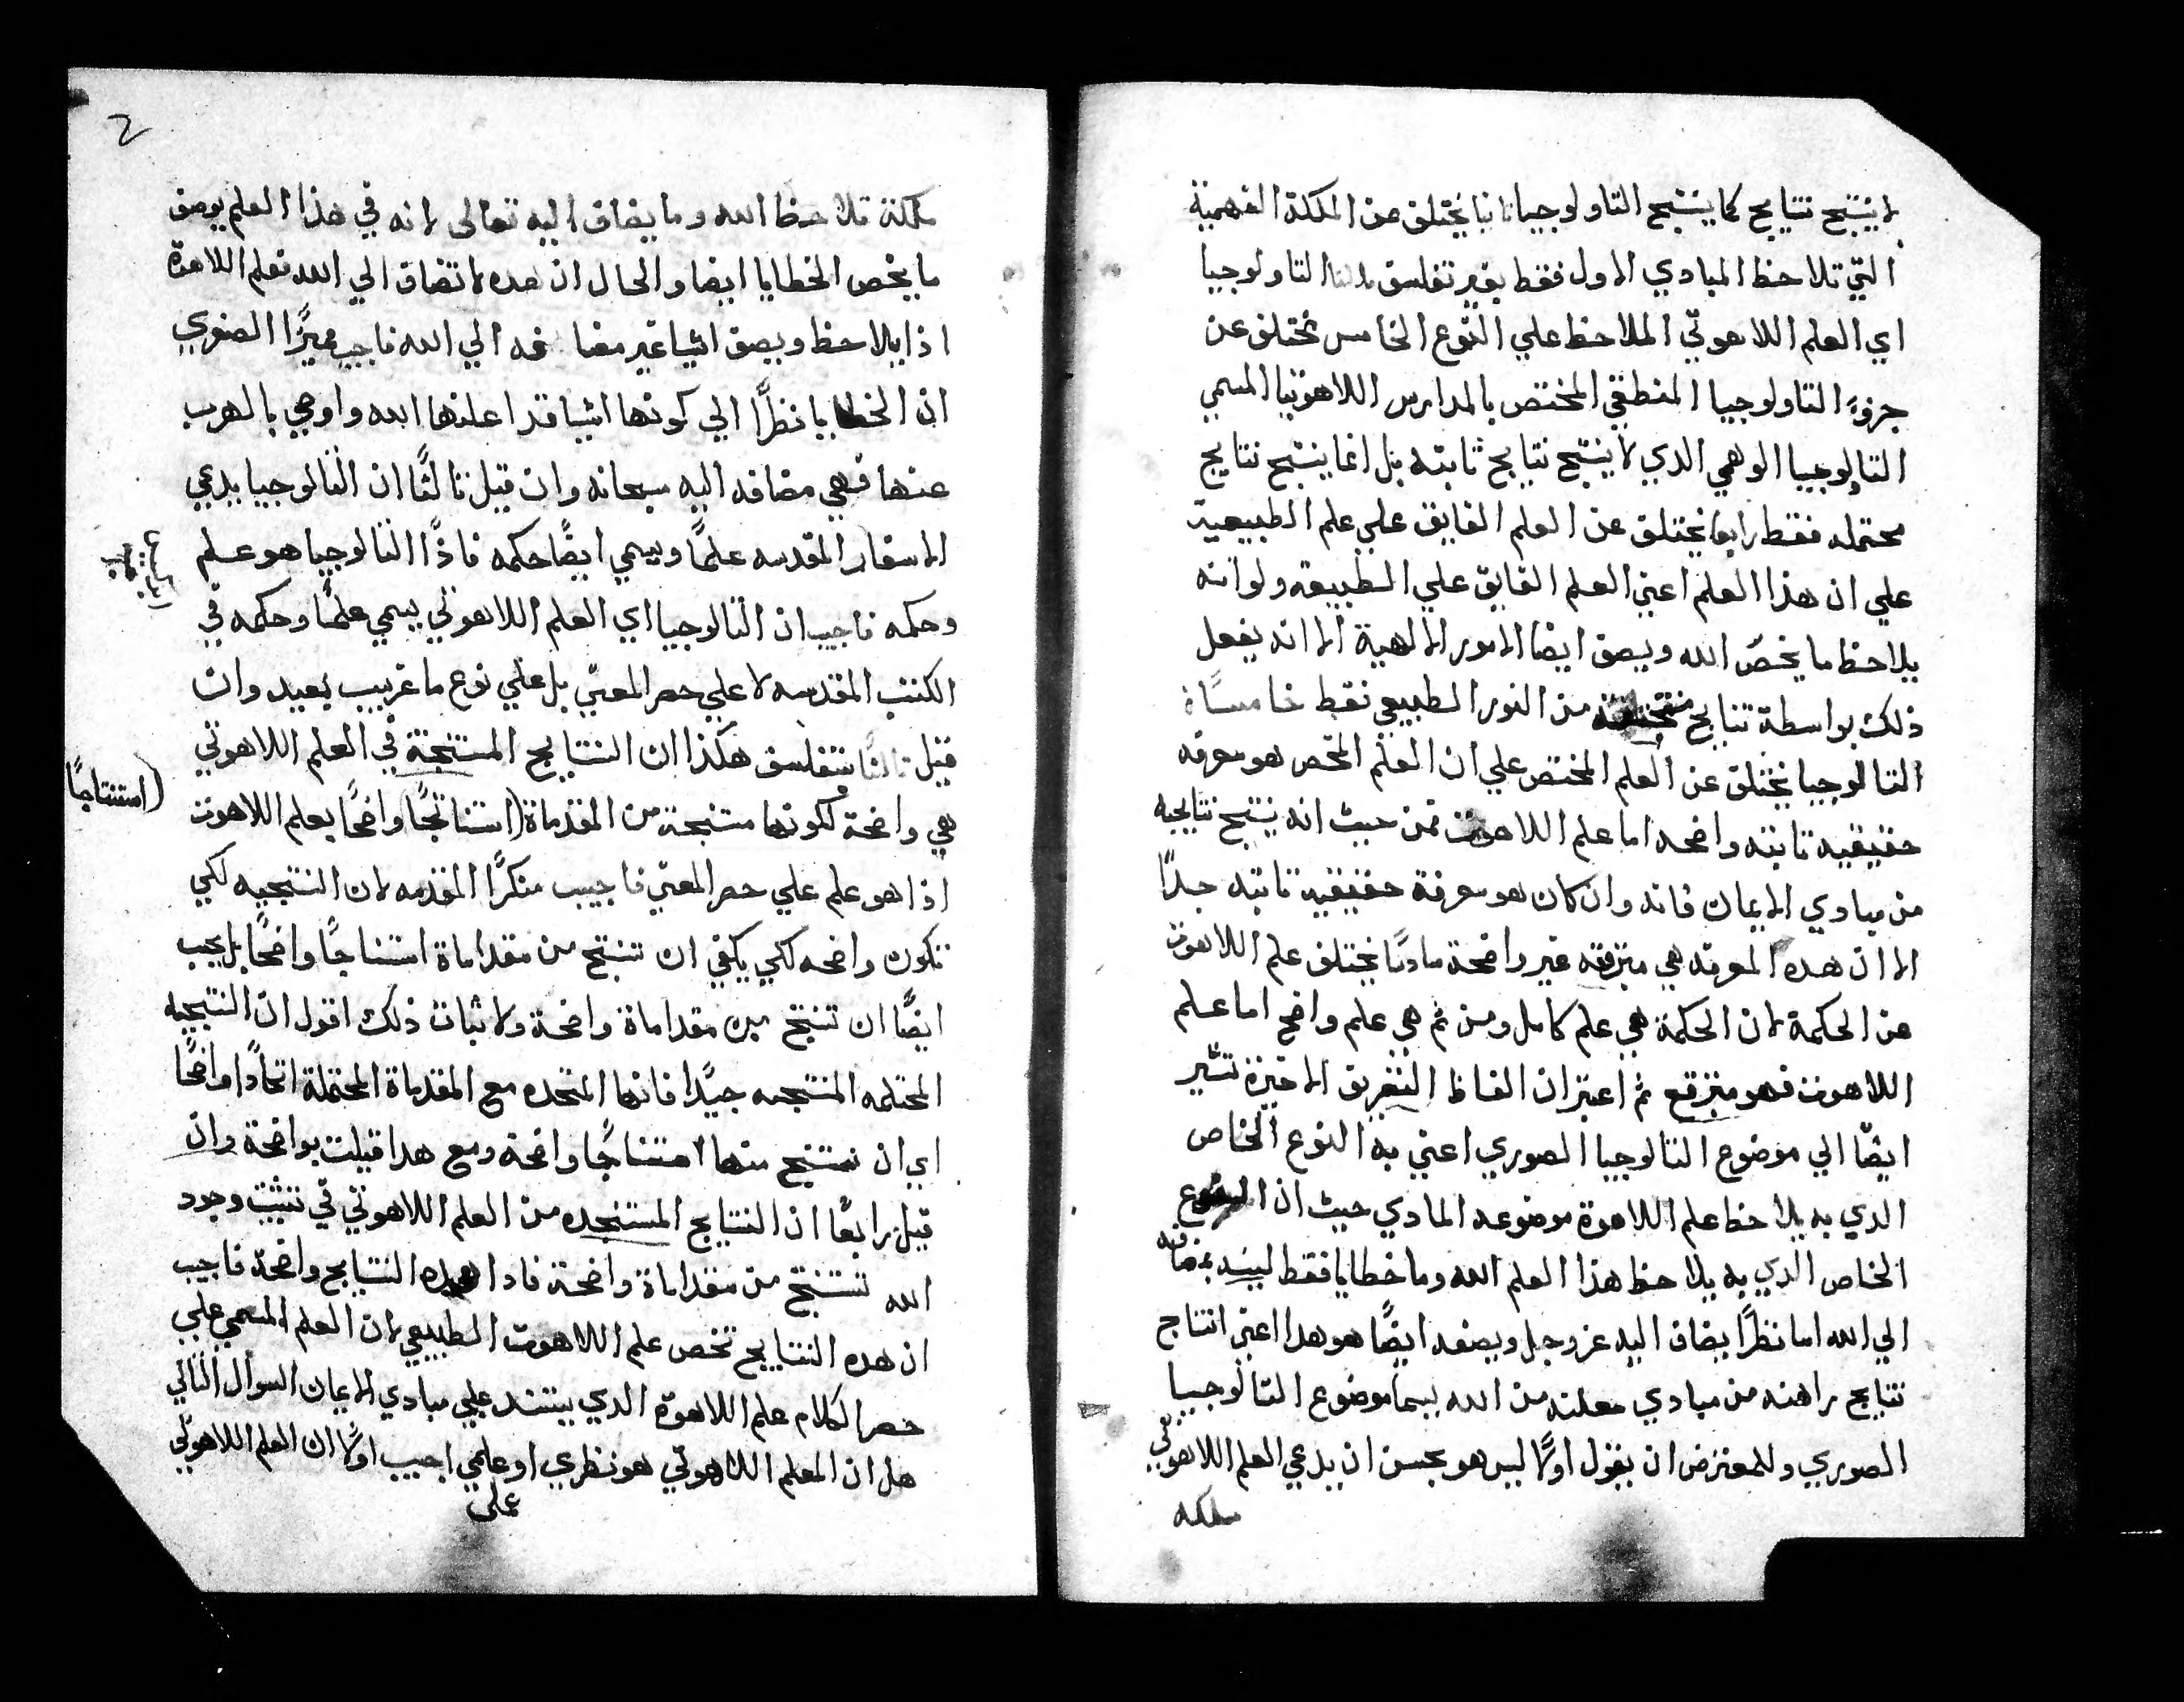 لاينتج نتايج كما ينتج التاولوجيا ثانيا يختلف عن الملكة الفهمية
التي تلاحظ المبادي الاول فقط بغير تفلسف ثالثا التاولوجيا
اي العلم اللاهوتي الملاحظ علي النوع الخامس تختلف عن
جزوء التاولوجيا المنطقي المختص بالمدارس اللاهوتيا المسمي
التاولوجيا الوهمي الدي لا ينتج نتايج ثابته بل انما ينتج نتايج
محتمله فقط رابعا يختلف عن العلم الفايق علي علم الطبيعية
علي ان هذا العلم اعني العلم الفايق علي الطبيعه ولو انه
يلاحظ ما يخص الله ويصف ايضا الامور الالهية الا انه يفعل
ذلك بواسطة نتايج منتجة من النور الطبيعي فقط خامسًا ان
التالوجيا يختلف عن العلم المختص علي ان العلم المختص هو معرفه
حقيقيه ثابته واضحه اما علم اللاهوت فمن حيث انه ينتج نتايجه
من مبادي الايمان فانه وان كان هو معرفة حقيقيه ثابته جدًا
الا ان هده المعرفه هي متبرقعه غير واضحة سادسًا يختلف علم اللاهوت
عن الحكمة لان الحكمة هي علم كامل ومن ثم هي علم واضح اما علم
اللاهوت فهو متبرقع ثم اعتبر ان الفاظ التفريق الاخيرة تشير
ايضًا الي موضوع التالوجيا الصوري اعني به النوع الخاص
الدي به يلاحظ علم اللاهوة موضوعه المادي حيث ان النوع
الخاص الدي به يلاحظ هذا العلم الله وما خطايا فقط ليسند بمضافه
الي الله اما نظرًا يضاف اليه عز وجل ويصفه ايضًا هو هدا اعني انتاج
نتايج راهنه من مبادي معلنه من الله بيما موضوع التالوجيا
الصوري وللمعترض ان يقول اولًا ليس هو بحسن ان يدعي العلم اللاهوتي
ملكه
2
ملكة تلاحظ الله وما يضاف اليه تعالي لانه في هذا العلم يوصف
ما يخص الخطايا ايضا والحال ان هده لا تضاف الي الله فعلم اللاهوة
اذا يلاحظ ويصف اشيا غير مضافه الي الله فاجيب مميزًا الصغري
ان الخطايا نظرًا الي كونها اشيا قد اعلنها الله واوصي بالهرب
عنها فهي مضافه اليه سبحانه وان قيل ثالثًا ان التالوجيا يدعي
الاسفار المقدسه علمًا ويسمي ايضًا حكمه فاذًا التالوجيا هو علم
وحكمه فاجيب ان التالوجيا اي العلم اللاهوتي يسمي علمًا وحكمه في
الكتب المقدسه لا علي حصر المعني بل علي نوع ما غريب بعيد وان
قيل ثالثًا بتفلسف هكذا ان النتايج المستنتجة في العلم اللاهوتي
هي واضحة لكونها منتجة من المقدماة (استناتجًا) واضحًا بعلم اللاهوت
(استنتاجًا
اذا هو علم علي حصر المعني فاجيب منكرًا المقدمه لان النتيجيه لكي
تكون واضحه لكي يكفي ان تنتج من مقداماة استناجًا واضحًا بل يجب
ايضًا ان تنتج من مقداماة واضحة ولاثبات ذلك اقول ان النتيجيه
المحتلمه المنتجبه جيدًا فانها المتحده مع المقدماة المحتملة اتحادًا واضحًا
اي ان تستنتج منها استناجًا واضحة ومع هدا قيلت بواضحة وان
قيل رابعًا ان النتايج المستنجده من العلم اللاهوتي في تثبيت وجود
الله تستنتج من مقداماة واضحة فادا هده النتايج واضحة فاجيب
ان هده النتايج تخص علم اللاهوت الطبيعي لان العلم المسمي علي
حصر الكلام علم اللاهوة الدي يستند علي مبادي الايمان السوال الثاني
هل ان العلم اللاهوتي هو نظري او علمي اجيب اولًا ان العلم اللاهوتي
علي